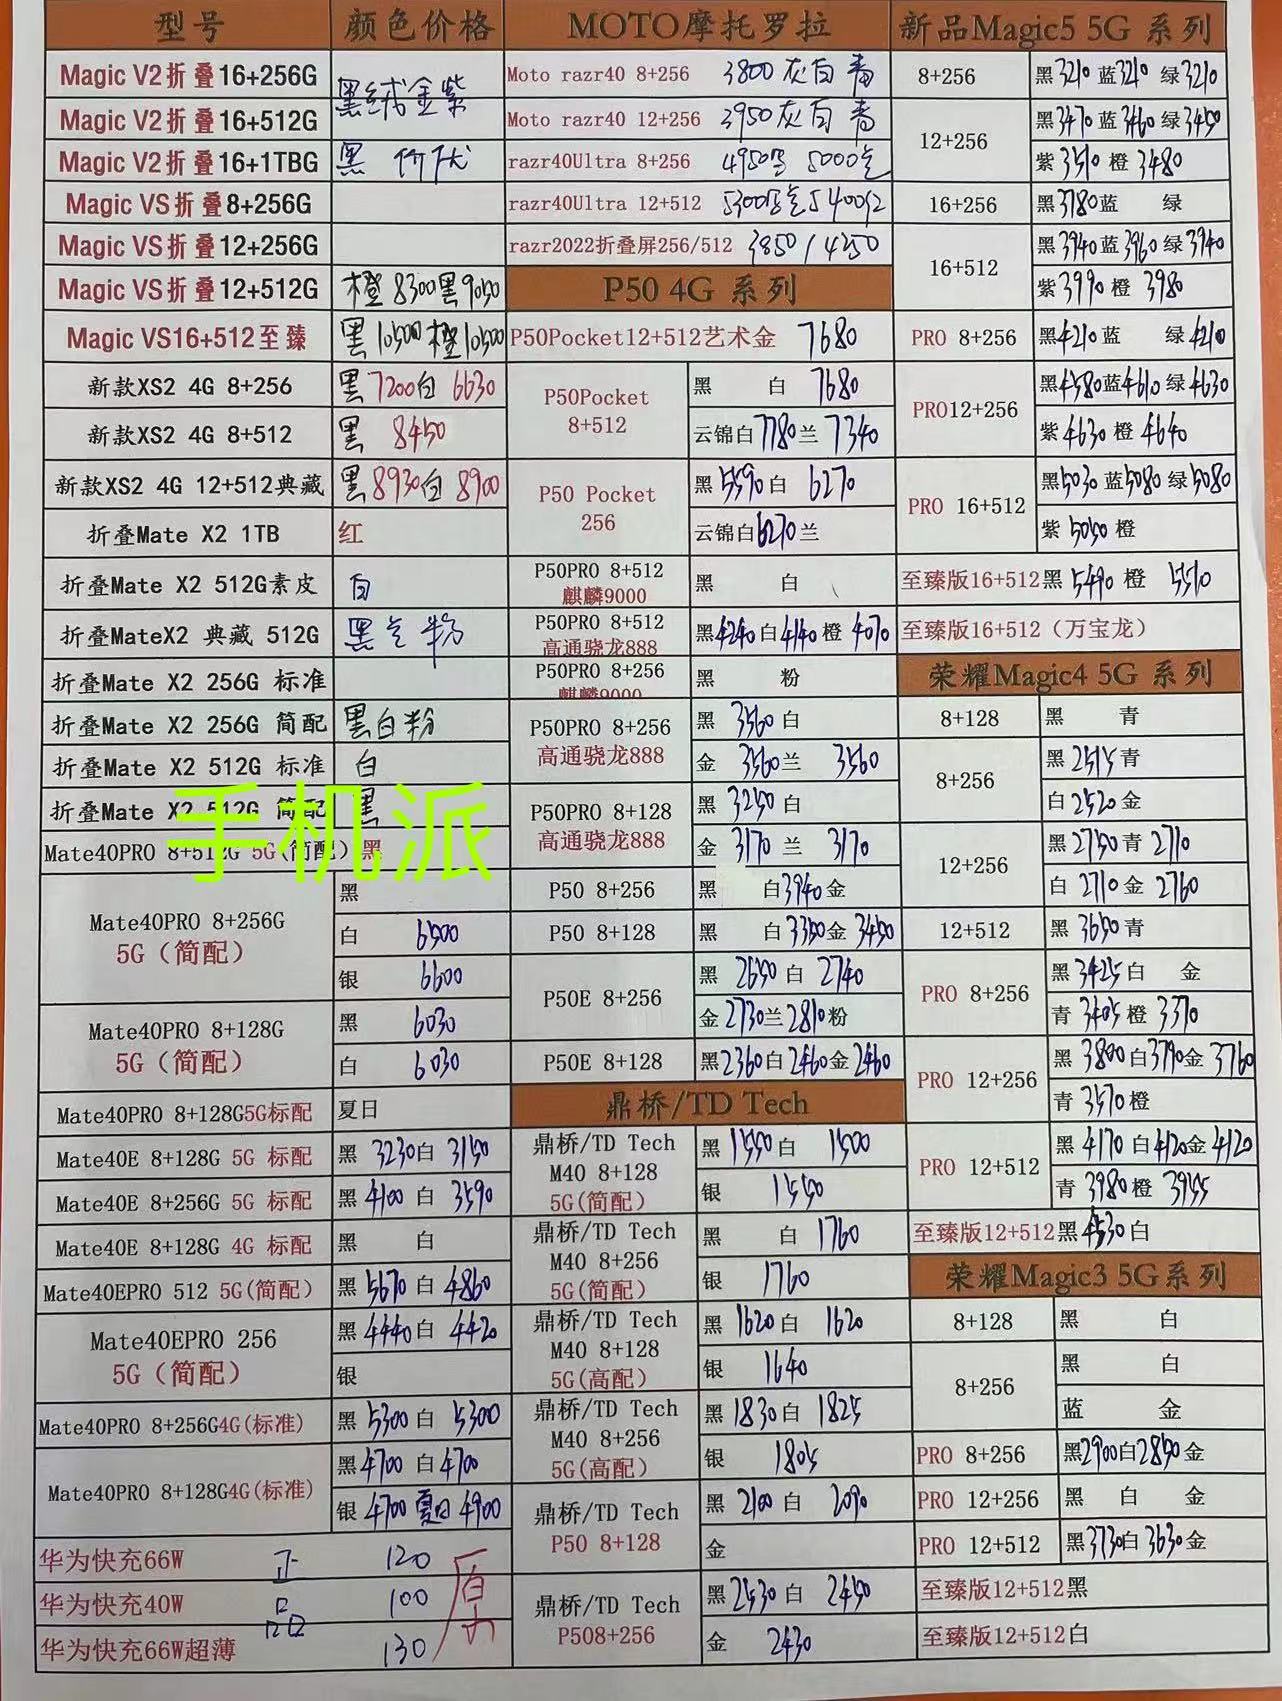 型号 颜色价格
Magic V2折叠16+256G 黑绒金紫
Magic V2折叠16+512G
Magic V2折叠16+1TBG 黑 价优
Magic VS折叠8+256G
Magic VS折叠12+256G
Magic VS折叠12+512G 橙8300黑9050
Magic VS16+512至臻 黑10500橙10500
新款XS2 4G 8+256 黑7200白 6630
新款XS2 4G 8+512 黑 8450
新款XS2 4G 12+512典藏 黑8930白 8900
折叠Mate X2 1TB 红
折叠Mate X2 512G素皮 白
折叠MateX2 典藏 512G 黑 粉
折叠Mate X2 256G 标准
折叠Mate X2 256G 简配 黑白粉
折叠Mate X2 512G 标准 白
折叠Mate X2 512G 简配 黑
手机派
Mate40PRO 8+512G 5G(简配) 黑
Mate40PRO 8+256G
5G（简配）
黑
白 6500
银 6600
Mate40PRO 8+128G
5G（简配）
黑 6030
白 6030
Mate40PRO 8+128G5G标配 夏日
Mate40E 8+128G 5G 标配 黑 3230白 3150
Mate40E 8+256G 5G 标配 黑 4100 白 3590
Mate40E 8+128G 4G 标配 黑 白
Mate40EPRO 512 5G(简配) 黑 5670 白 4860
Mate40EPRO 256
5G（简配）
黑 4440白 4420
银
Mate40PRO 8+256G4G(标准) 黑 5300 白 5300
Mate40PRO 8+128G4G(标准)
黑4700 白4700
银4700 夏日4900
华为快充66W 正 120
华为快充40W 品 100
华为快充66W超薄 130
MOTO摩托罗拉
Moto razr40 8+256 3800 灰白 青
Moto razr40 12+256 3950灰白 青
razr40Ultra 8+256 4950 5000
razr40Ultra 12+512 5300 5400红
razr2022折叠屏256/512 3850/4250
P50 4G 系列
P50Pocket12+512艺术金 7680
P50Pocket
8+512
黑 白 7680
云锦白7780兰 7340
P50 Pocket
256
黑5590白 6270
云锦白6270兰
P50PRO 8+512
麒麟9000
黑 白
P50PRO 8+512
高通骁龙888
黑4240白4140橙 4070
P50PRO 8+256
麒麟9000
黑 粉
P50PRO 8+256
高通骁龙888
黑 3560白
金 3560兰 3560
P50PRO 8+128
高通骁龙888
黑 3250白
金 3170 兰 3170
P50 8+256 黑 白3940金
P50 8+128 黑 白3350金 3450
P50E 8+256
黑 2650白 2740
金2730兰2810粉
P50E 8+128 黑2360白2460金2460
鼎桥/TD Tech
鼎桥/TD Tech
M40 8+128
5G(简配)
黑 1550白 1500
银 1550
鼎桥/TD Tech
M40 8+256
5G(简配)
黑 白 1760
银 1760
鼎桥/TD Tech
M40 8+128
5G(高配)
黑 1620白 1620
银 1640
鼎桥/TD Tech
M40 8+256
5G(高配)
黑 1830白 1825
银 1805
鼎桥/TD Tech
P50 8+128
黑 2100 白 2090
金
鼎桥/TD Tech
P508+256
黑 2530 白 2450
金 2430
新品Magic5 5G 系列
8+256 黑3210蓝3210 绿3210
12+256
黑3470蓝3460绿3450
紫3510橙 3480
16+256 黑3780蓝 绿
16+512
黑3940蓝3960绿3940
紫3990橙 3980
PRO 8+256 黑4210蓝 绿4210
PRO12+256
黑4580蓝4610绿4630
紫4630橙 4640
PRO 16+512
黑5030蓝5080绿5080
紫 5050橙
至臻版16+512黑 5490 橙 5510
至臻版16+512（万宝龙）
荣耀Magic4 5G 系列
8+128 黑 青
8+256
黑 2515青
白2520金
12+256
黑 2750青 2710
白 2710金 2760
12+512 黑 3650青
PRO 8+256
黑 3425白 金
青 3405橙 3370
PRO 12+256
黑 3800白3790金 3760
青 3570橙
PRO 12+512
黑 4170 白4120金 4120
青 3980橙 3955
至臻版12+512黑4530白
荣耀Magic3 5G系列
8+128 黑 白
8+256
黑 白
蓝 金
PRO 8+256 黑2900白2850金
PRO 12+256 黑 白 金
PRO 12+512 黑3730白3630金
至臻版12+512黑
至臻版12+512白